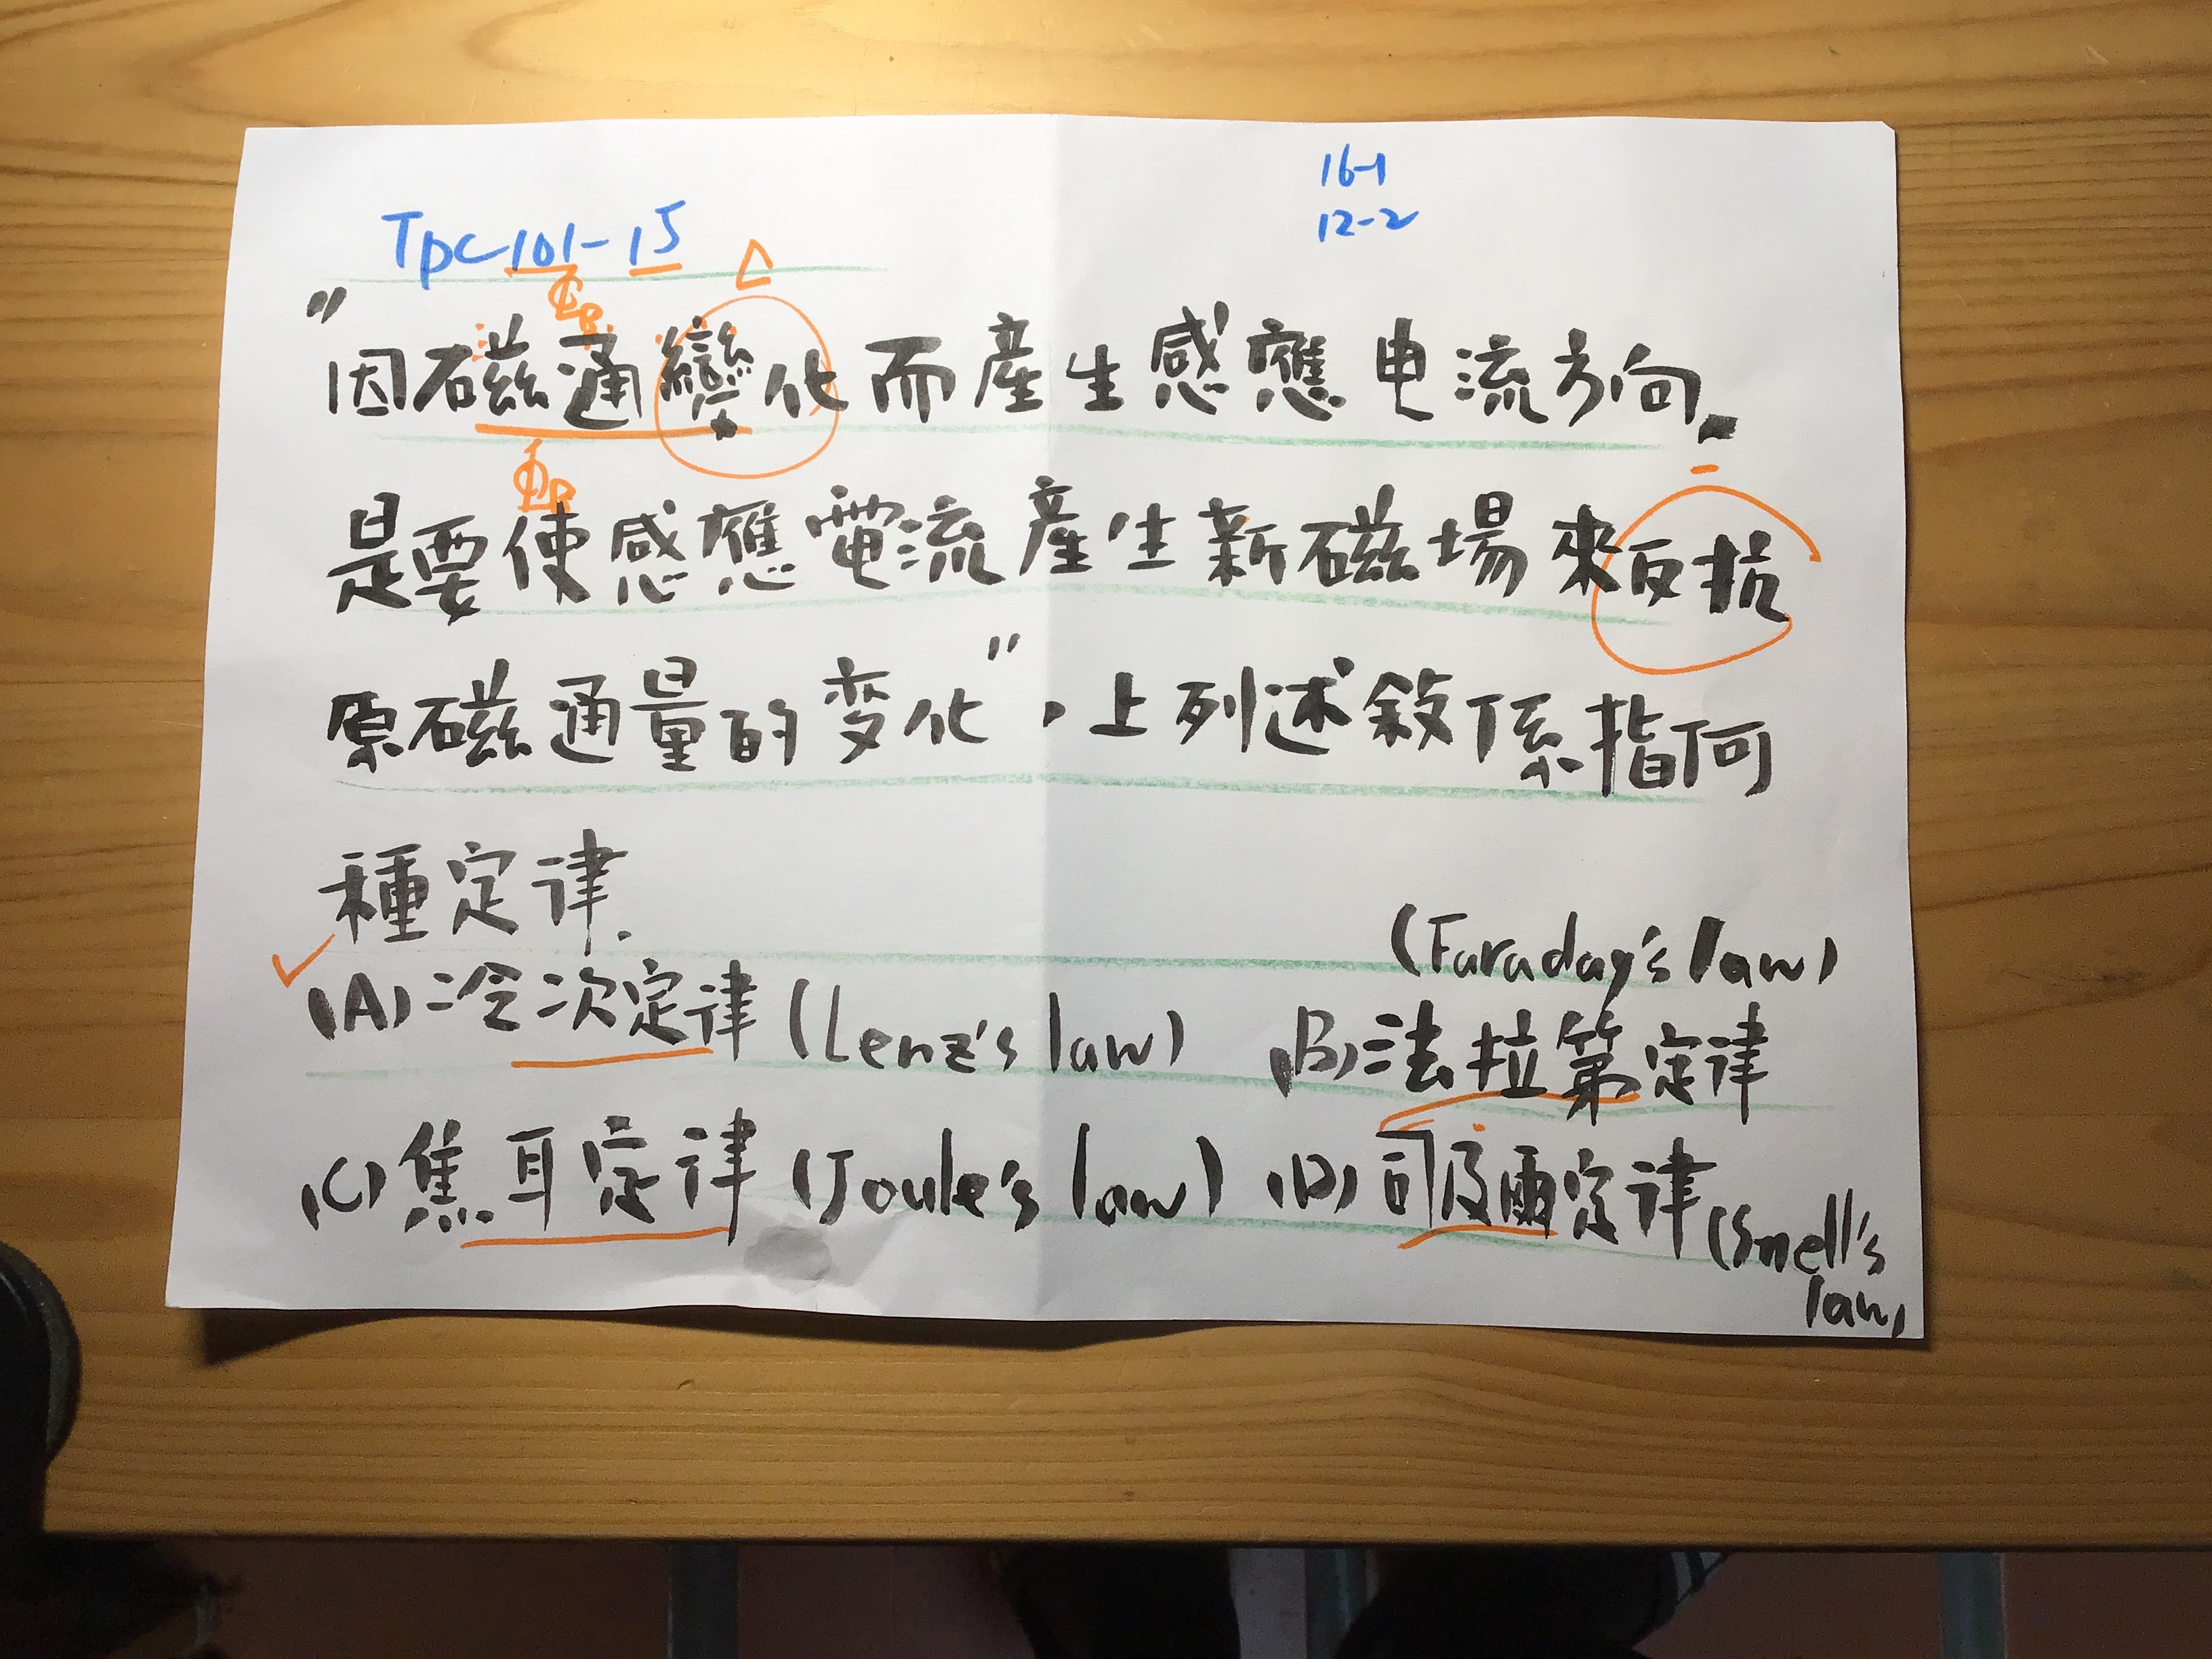 16-1
12-2
Tpc101-15
Δ
Φ_B
"因磁通變化而產生感應电流方向,
Φ_B
-
是要使感應電流產生新磁場來反抗
原磁通量的变化",上列述敘係指何
種定律.
(Faraday's law)
✓
(A)冷次定律(Lenz's law) (B)法拉第定律
(C)焦耳定律(Joule's law) (D)司及爾定律(Snell's
law)